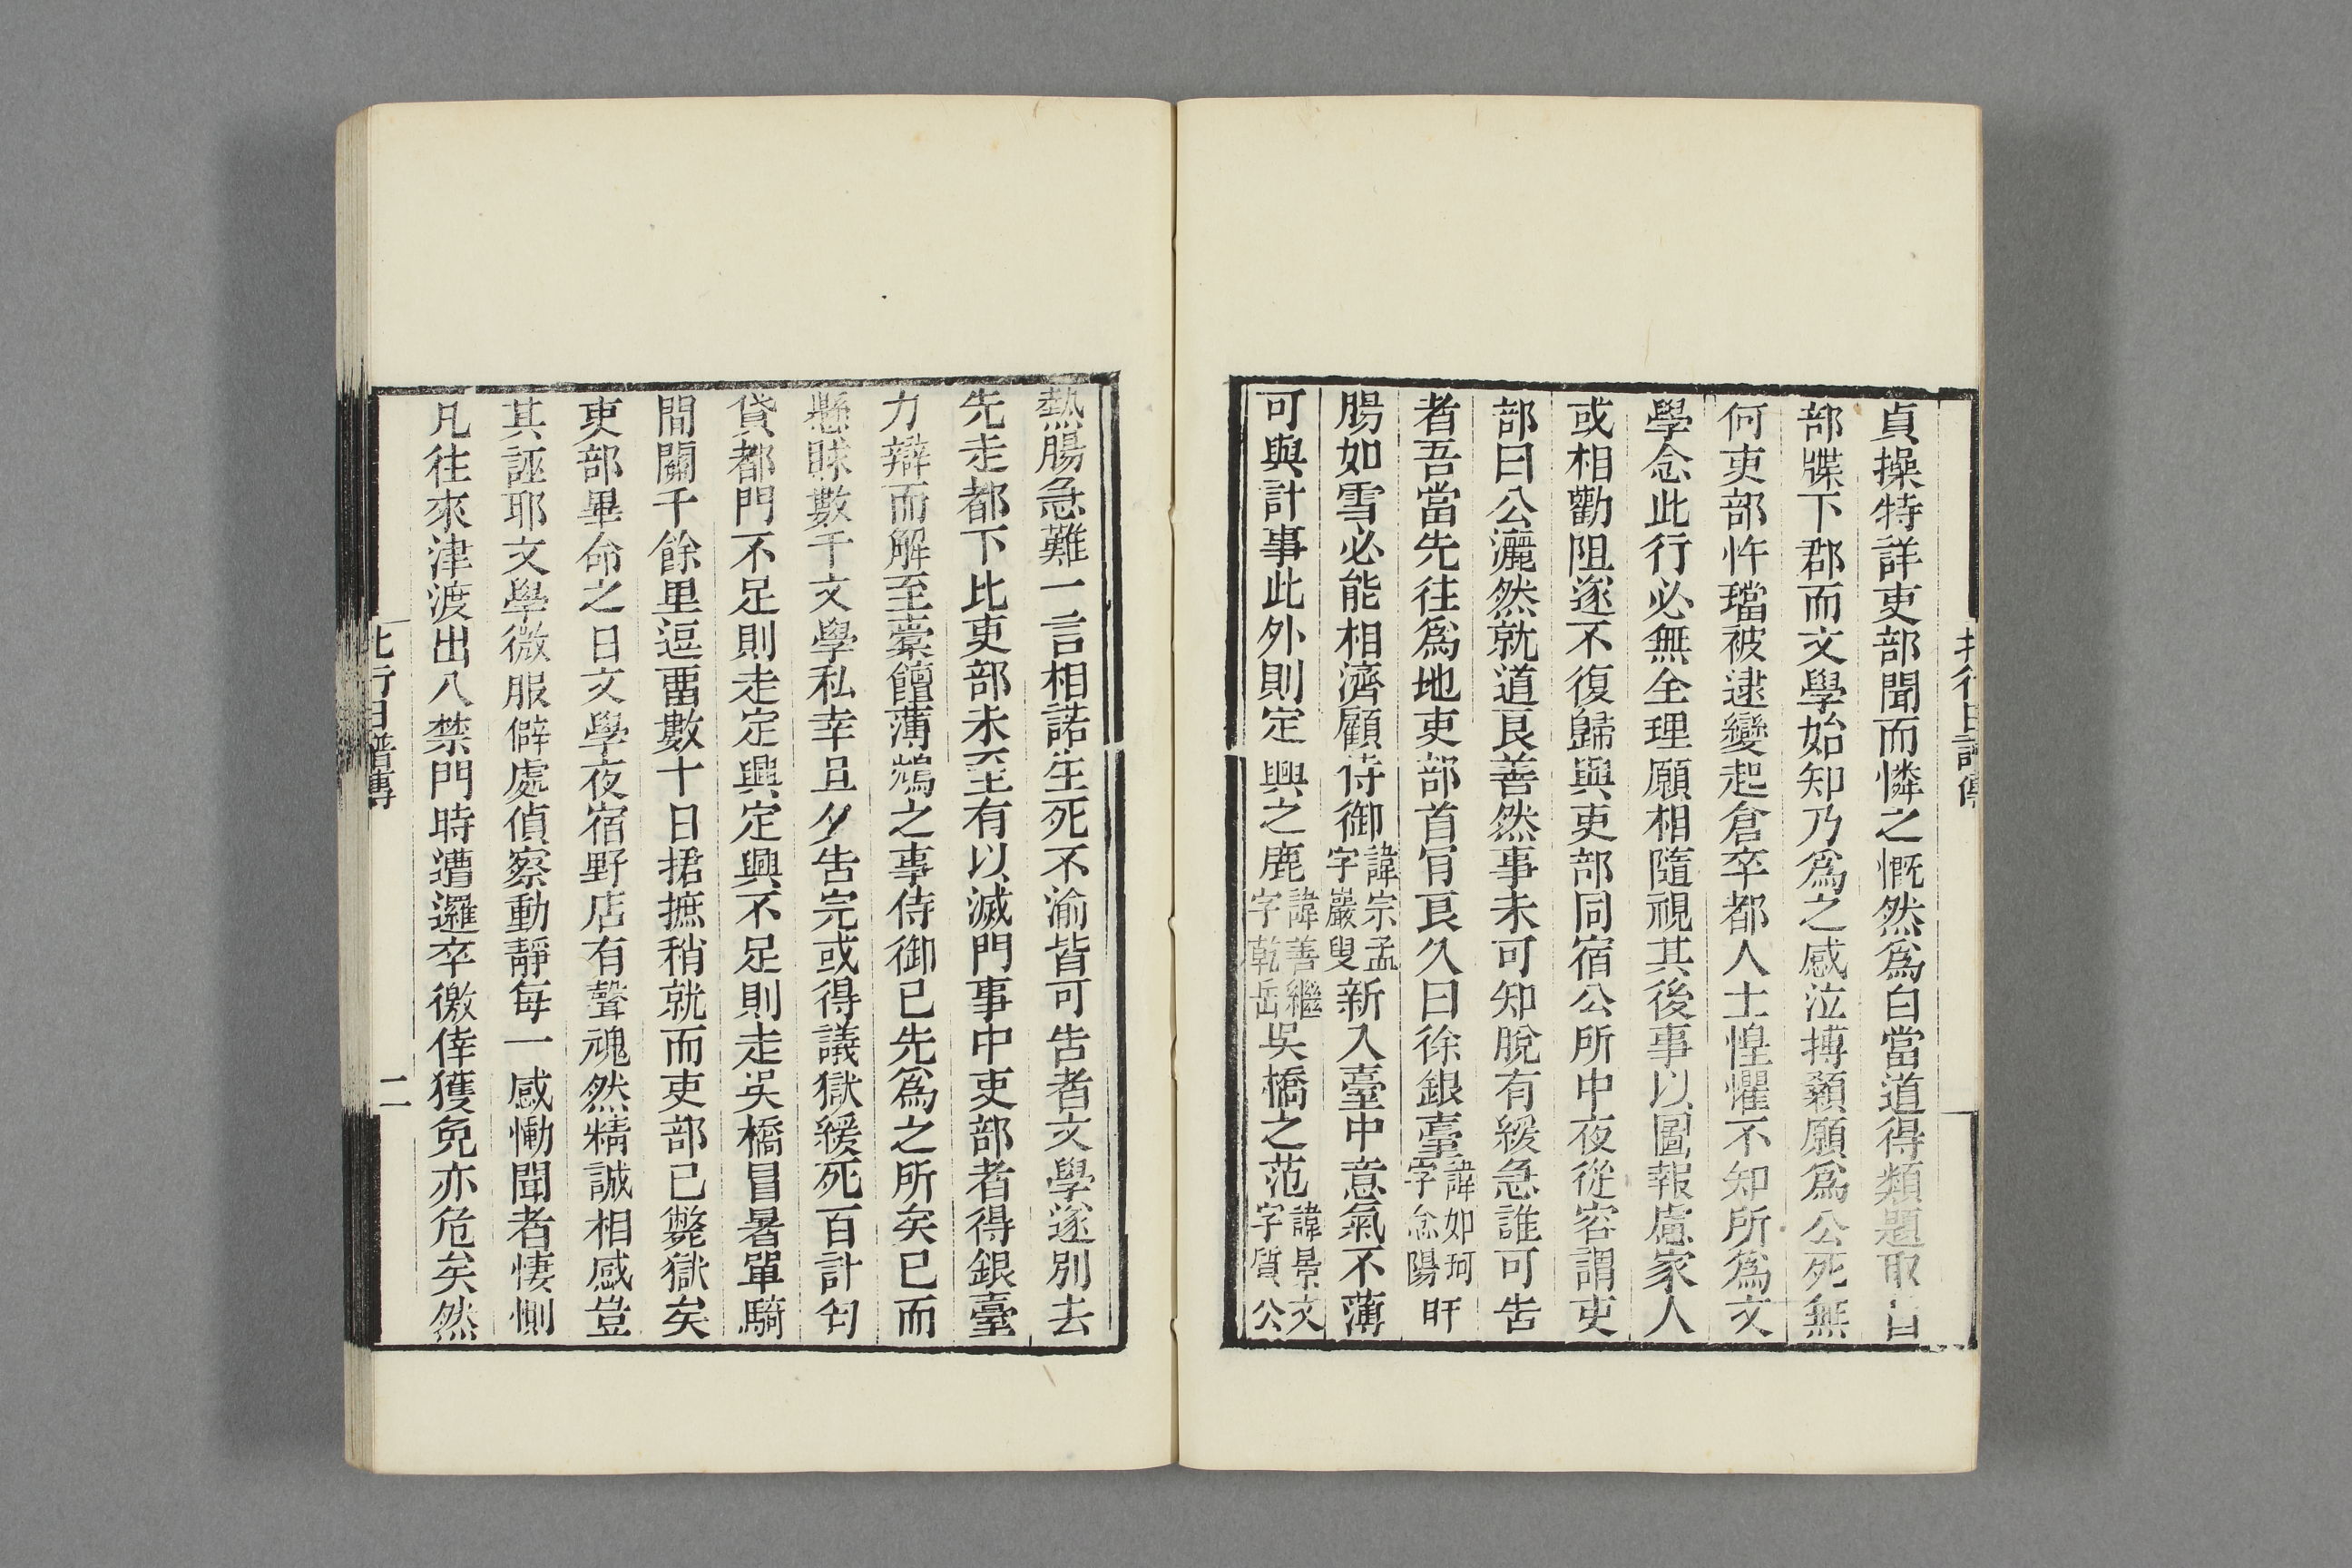 貞操特詳吏部聞而憐之慨然爲白當道得類題取旨
部牒下郡而文學始知乃爲之感泣搏顙願爲公死無
何吏部忤璫被逮變起倉卒都人士惶懼不知所爲文
學念此行必無全理願相隨視其後事以圖報慮家人
或相勸阻遂不復歸與吏部同宿公所中夜從容謂吏
部曰公灑然就道良善然事未可知脫有緩急誰可告
者吾當先往爲地吏部首肎良久曰徐銀臺諱如珂字念陽肝
腸如雪必能相濟顧侍御諱宗孟字巖叟新入臺中意氣不薄
可與計事此外則定興之鹿諱善繼字乾岳吳橋之范諱景文字質公
熱腸急難一言相諾生死不渝皆可告者文學遂別去
先走都下比吏部未至有以滅門事中吏部者得銀臺
力辯而解至橐饘薄鴆之事侍御已先爲之所矣已而
懸賕數千文學私幸旦夕告完或得議獄緩死百計匄
貸都門不足則走定興定興不足則走吳橋冒暑單騎
間關千餘里逗畱數十日捃摭稍就而吏部已斃獄矣
吏部畢命之日文學夜宿野店有聲魂然精誠相感豈
其誣耶文學微服僻處偵察動靜每一感慟聞者悽惻
凡往來津渡出入禁門時遭邏卒徼倖獲免亦危矣然
北行日譜傳
二